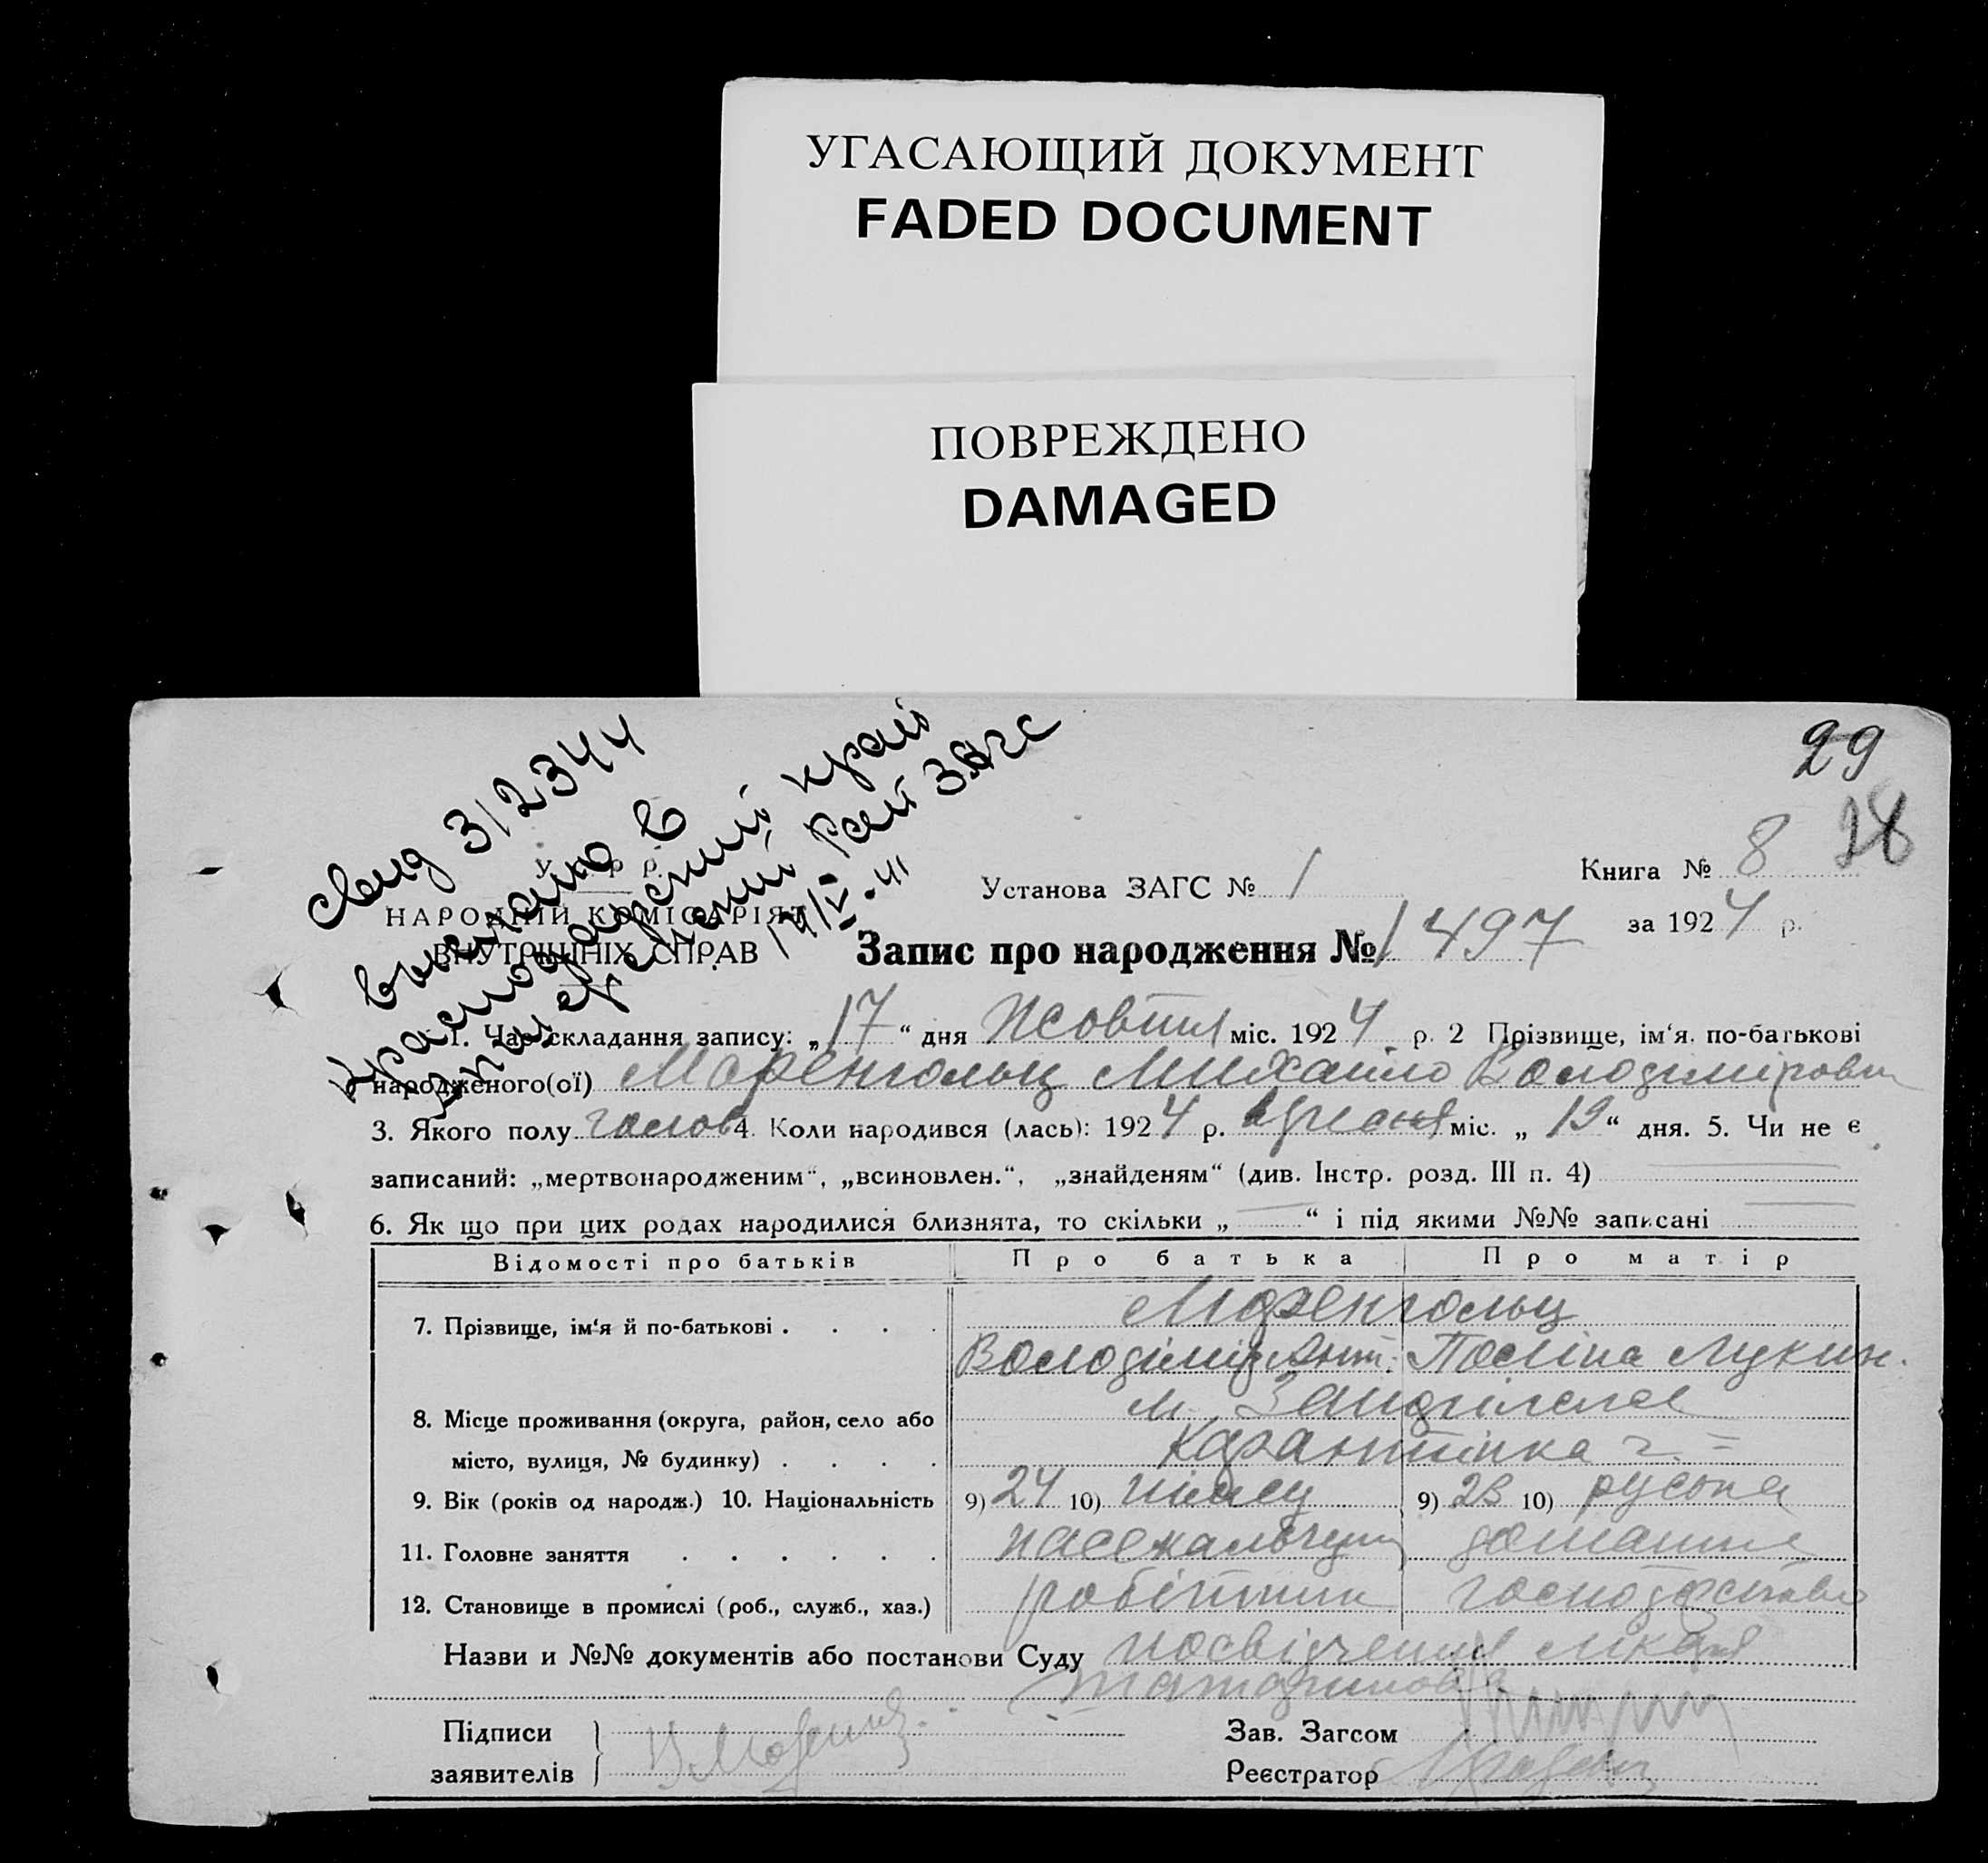 УГАСАЮЩИЙ ДОКУМЕНТ
FADED DOCUMENT
ПОВРЕЖДЕНО
DAMAGED
29
28
Свид 312344
выслано в
Краснодарский край
рай ЗАГС
14/V-41
У. С. Р. Р.
НАРОДНІЙ КОМІСАРІЯТ
ВНУТРІШНІХ СПРАВ
Установа ЗАГС № 1
Книга № 8
за 1924 р.
Запис про народження № 1497
1. Час складання запису: „17“ дня Жовтня міс. 1924 р. 2 Прізвище, ім‘я, по-батькові
народженого(ої) Моренгольц Михайло Володимірович
3. Якого полу чолов 4. Коли народився (лась): 1924 р. міс. „19“ дня. 5. Чи не є
записаний: „мертвонародженим“, „всиновлен.“, „знайденям“ (див. Інстр. розд. III п. 4)
6. Як що при цих родах народилися близнята, то скільки „ “ і під якими №№ записані
Відомості про батьків Про батька Про матір
7. Прізвище, ім‘я й по-батькові . . . . Моренгольц
Володімір Ант. Поліна Лукин.
8. Місце проживання (округа, район, село або м.
місто, вулиця, № будинку) . . . . Карантінка
9. Вік (років од народж.) 10. Національність 9) 24 10) 9) 23 10) руська
11. Головне заняття . . . . . . домашнє
12. Становище в промислі (роб., служб., хаз.) робітник господарство
Назви и №№ документів або постанови Суду посвідчення лікаря
Підписи
заявителів
Зав. Загсом
Реєстратор